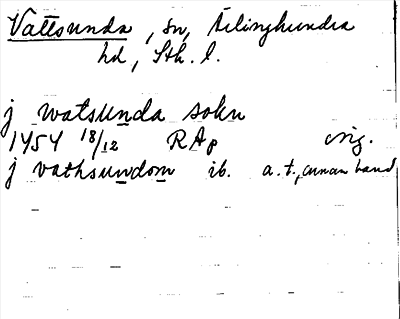 Vattsunda, sn, Ärlinghundra
hd, Sth. l.
j watsunda sokn
1454 18/12 RAp orig.
j vathsundom ib. a.t., annan hand